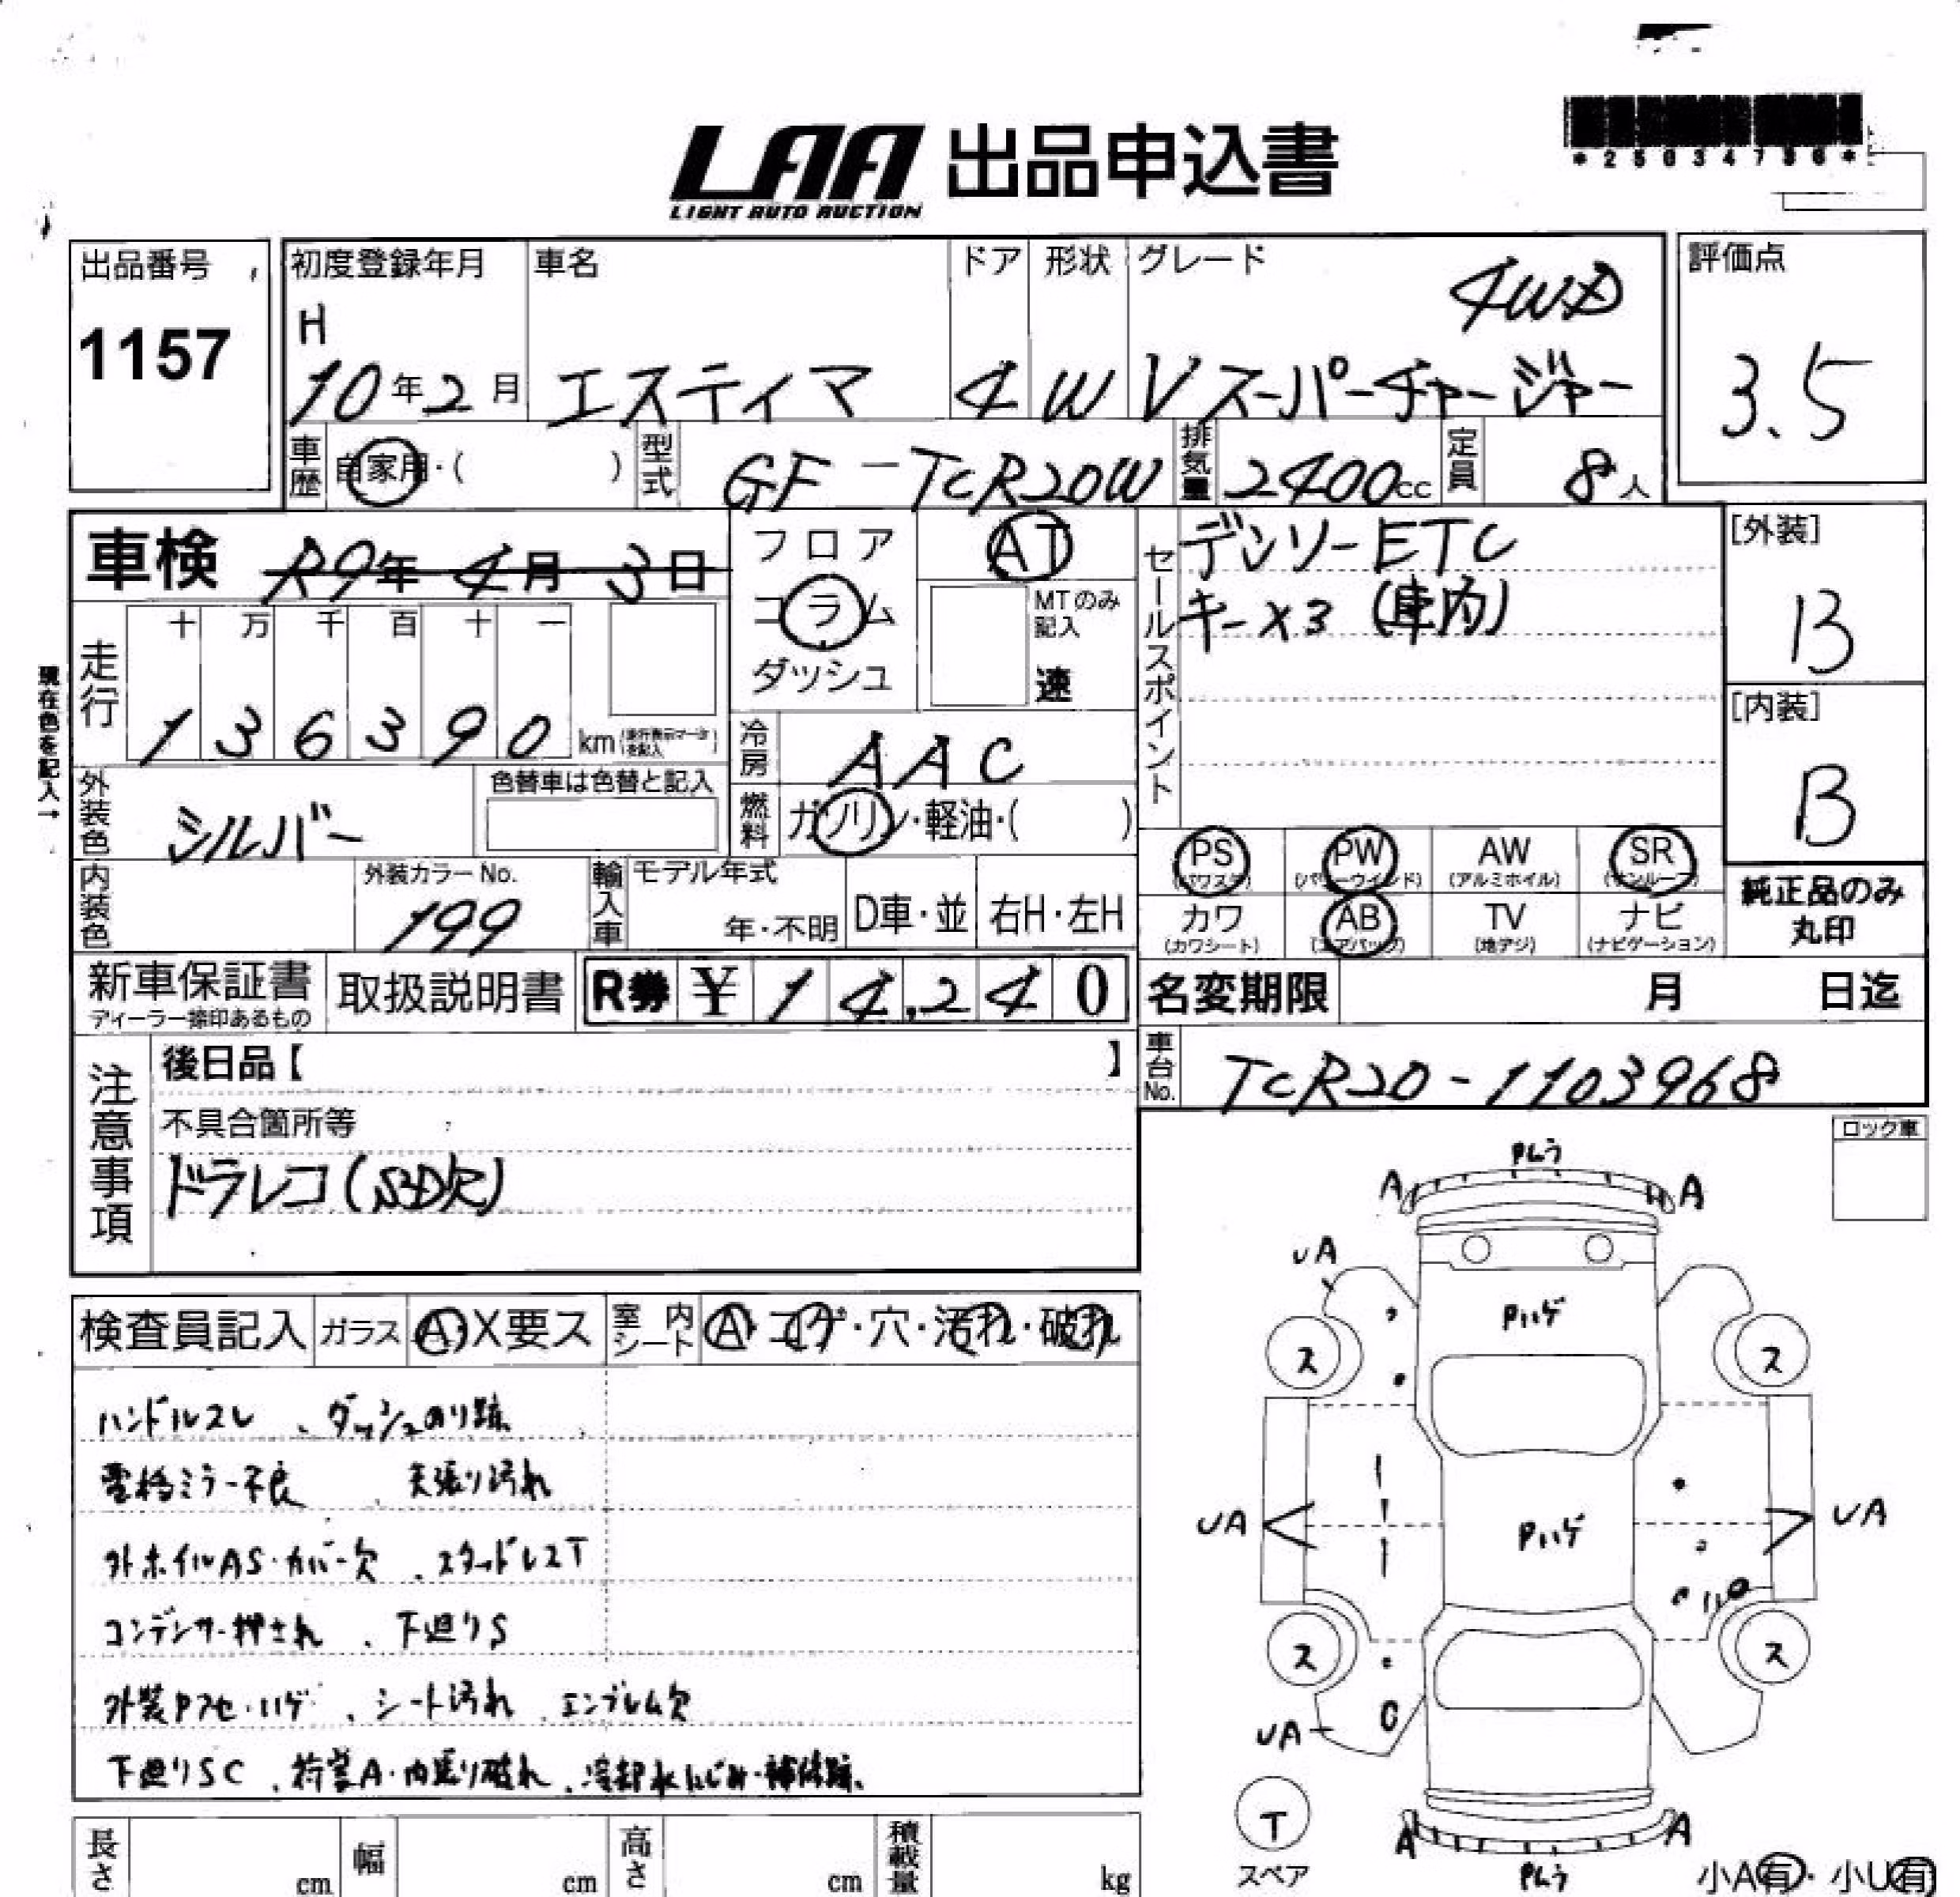 *25034736*
LAA 出品申込書
LIGHT AUTO AUCTION
出品番号
1157
初度登録年月
H
10年2月
車名
エスティマ
ドア
4
形状
W
グレード
4WD
Vスーパーチャージャー
評価点
3.5
車歴
自家用・( )
型式
GF-TCR20W
排気量
2400cc
定員
8人
車検
R9年4月3日
フロア
コラム
ダッシュ
AT
MTのみ記入
速
セールスポイント
デンソーETC
キー×3(車内)
[外装]
B
[内装]
B
純正品のみ
丸印
現在色を記入→
走行
十 万 千 百 十 一
1 3 6 3 9 0 km
冷房
AAC
外装色
シルバー
色替車は色替と記入
燃料
ガソリン・軽油・( )
PS
(パワステ)
PW
(パワーウインド)
AW
(アルミホイル)
SR
(サンルーフ)
カワ
(カワシート)
AB
(エアバッグ)
TV
(地デジ)
ナビ
(ナビゲーション)
内装色
外装カラーNo.
199
輸入車
モデル年式
年・不明
D車・並
右H・左H
新車保証書
ディーラー捺印あるもの
取扱説明書
R券 ¥14,240
名変期限
月 日迄
車台No.
TCR20-1103968
注意事項
後日品【 】
不具合箇所等
ドラレコ(SD欠)
ロック車
検査員記入
ガラス
A・X要ス
室内シート
A・コゲ・穴・汚れ・破れ
ハンドルスレ、ダッシュのり跡
電格ミラー不良、天張り汚れ
外ホイルAS・カバー欠、スタッドレスT
コンデンサー押され、下廻りS
外装アクセ・ハゲ、シート汚れ、エンブレム欠
下廻りSC、荷室A・内張り破れ、冷却水にじみ・補修跡
Pムラ
A
A
UA
Pハゲ
ス
ス
UA
Pハゲ
UA
ス
ス
UA
T
スペア
A
A
Pムラ
小A有・小U有
長さ
cm
幅
cm
高さ
cm
積載量
kg